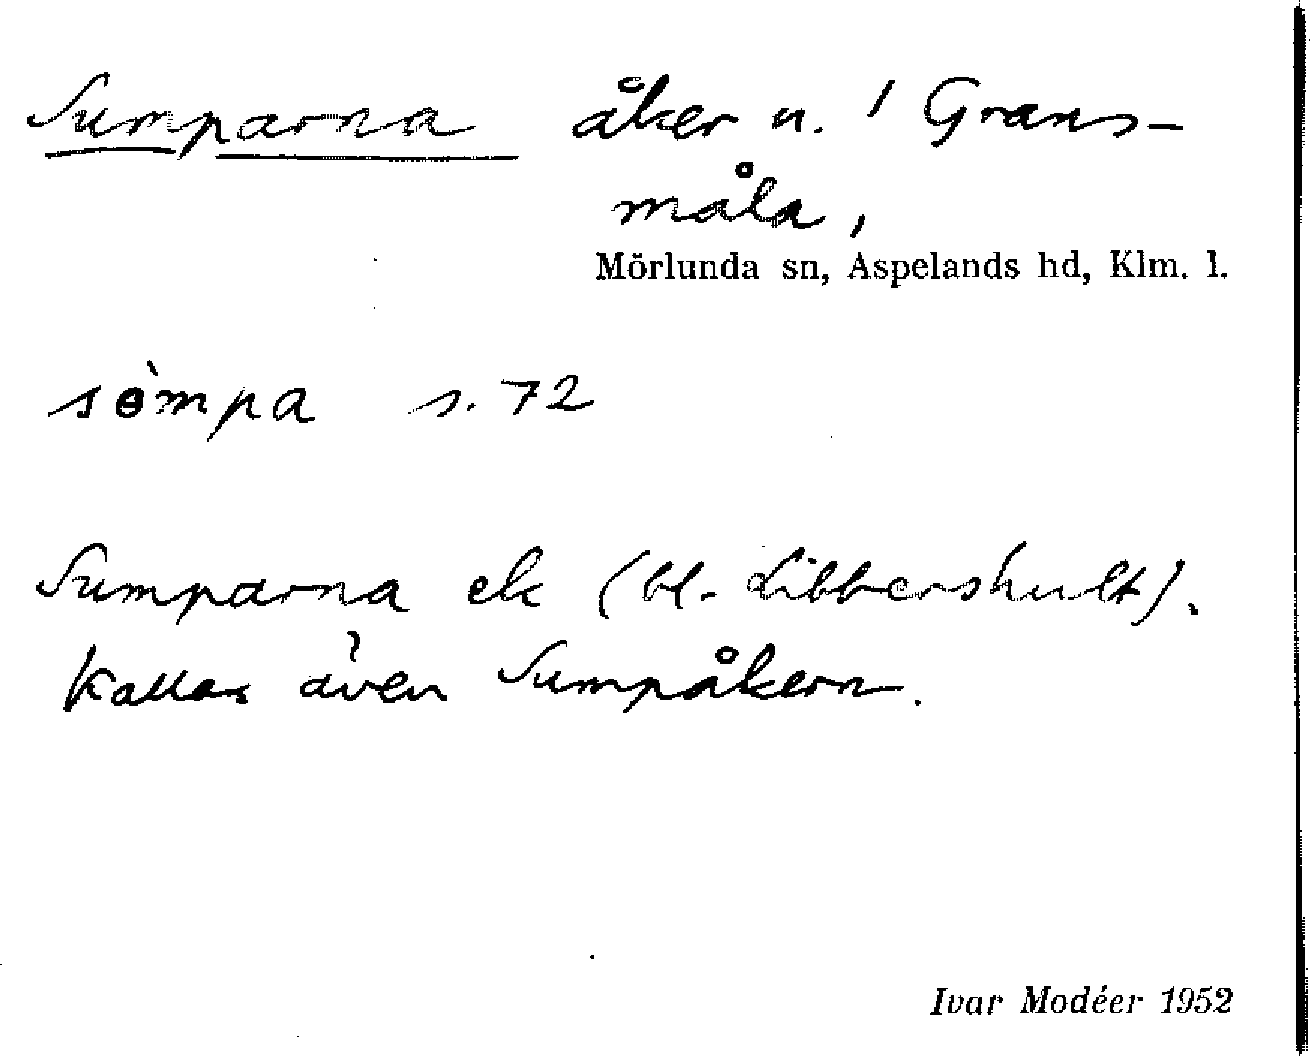 Sumparna åker u. 1 Grans-
måla,
Mörlunda sn, Aspelands hd, Klm. l.
sòmpa s. 72
Sumparna ek (bl. Libbershult).
Kallas även Sumpåkern.
Ivar Modéer 1952